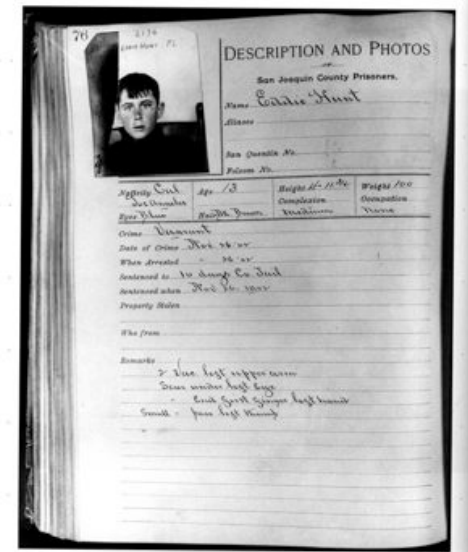 76
EDDIE HUNT
DESCRIPTION AND PHOTOS
San Joaquin County Prisoners.
Name Eddie Hunt
Aliases
San Quentin No.
Folsom No.
Nativity Cal Age 13 Height Weight 100
Los Angeles Complexion Occupation
Eyes Blue Hair Dk Brown Medium None
Crime Vagrant
Date of Crime Nov 26/02
When Arrested " 26/02
Sentenced to 10 days Co Jail
Sentenced when Nov 26, 1902
Property Stolen
Who from
Remarks
2 Vac left upper arm
Scar under left Eye
" End first finger left hand
Small " left thumb